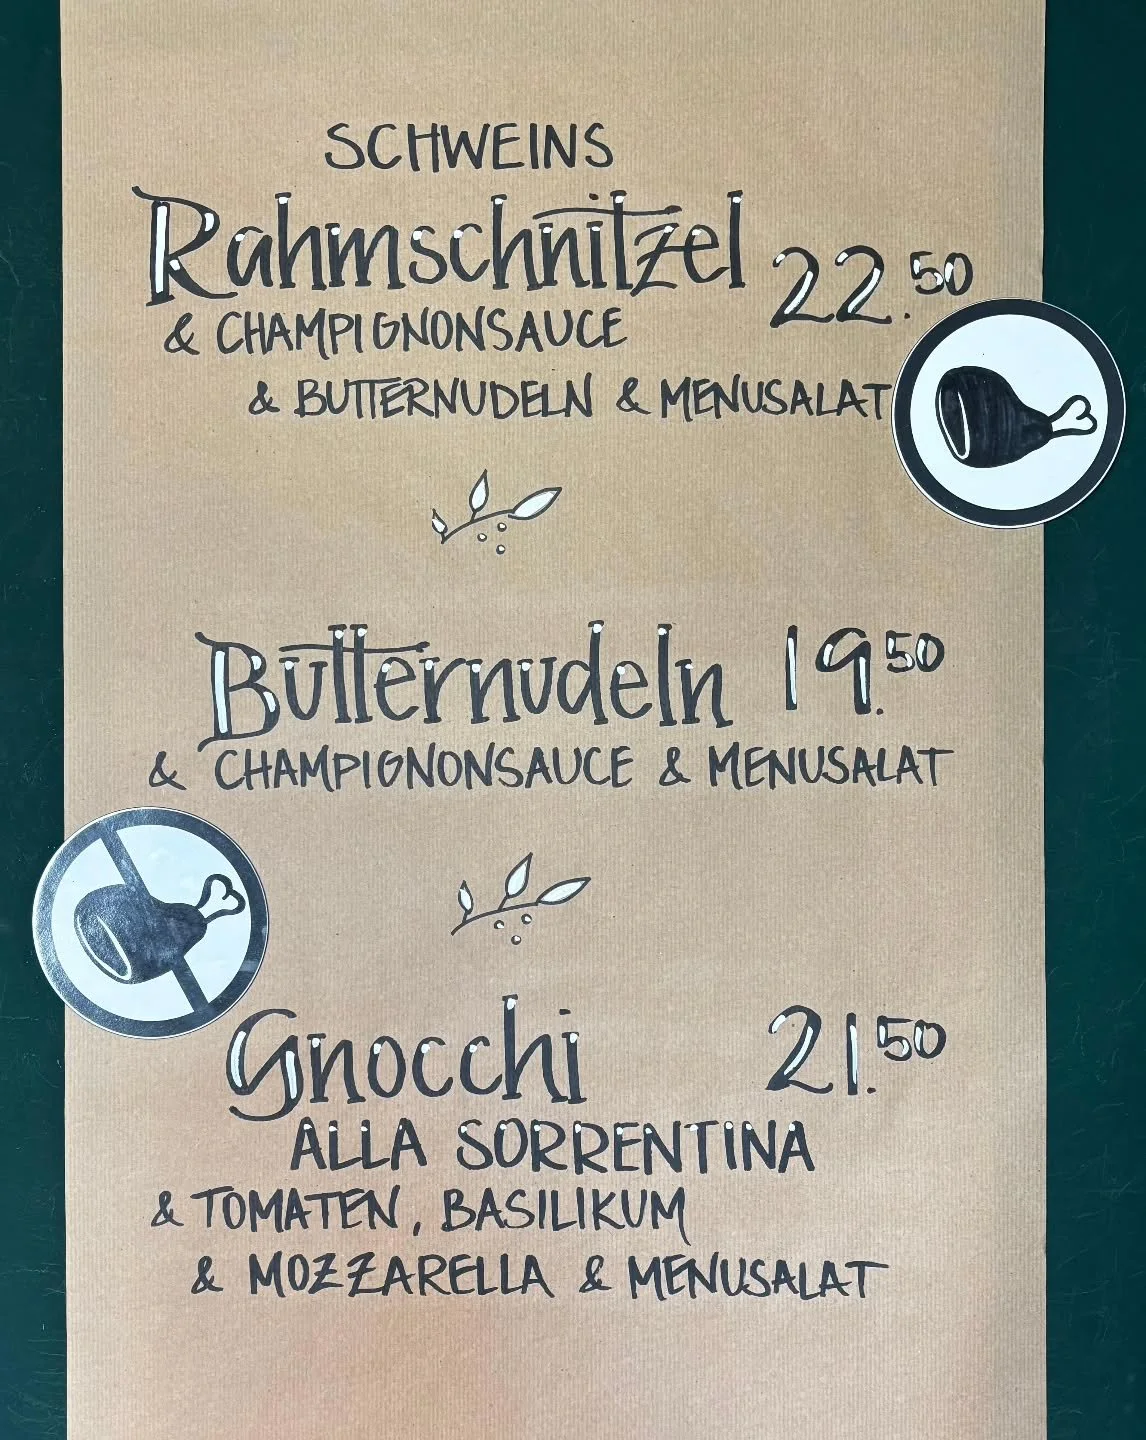 SCHWEINS
Rahmschnitzel 22.50
& CHAMPIGNONSAUCE
& BUTTERNUDELN & MENUSALAT
Butternudeln 19.50
& CHAMPIGNONSAUCE & MENUSALAT
Gnocchi 21.50
ALLA SORRENTINA
& TOMATEN, BASILIKUM
& MOZZARELLA & MENUSALAT